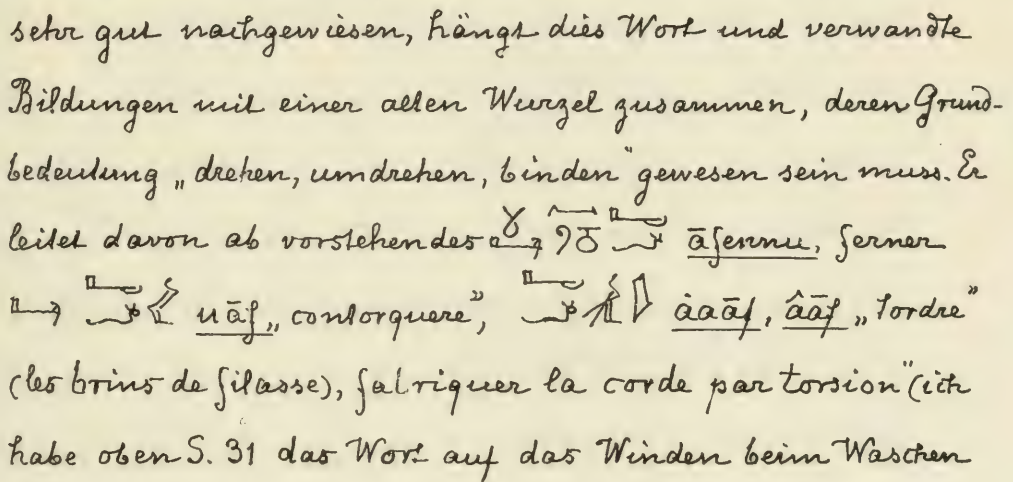 sehr gut nachgewiesen, hängt dies Wort und verwandte
Bildungen mit einer alten Wurzel zusammen, deren Grund-
bedeutung „drehen, umdrehen, binden" gewesen sein muss. Er
leitet davon ab vorstehendes āfennu, ferner
uāf „contorquere", ȧaāf, âāf „tordre"
(les brins de filasse), fabriquer la corde par torsion" (ich
habe oben S. 31 das Wort auf das Winden beim Waschen